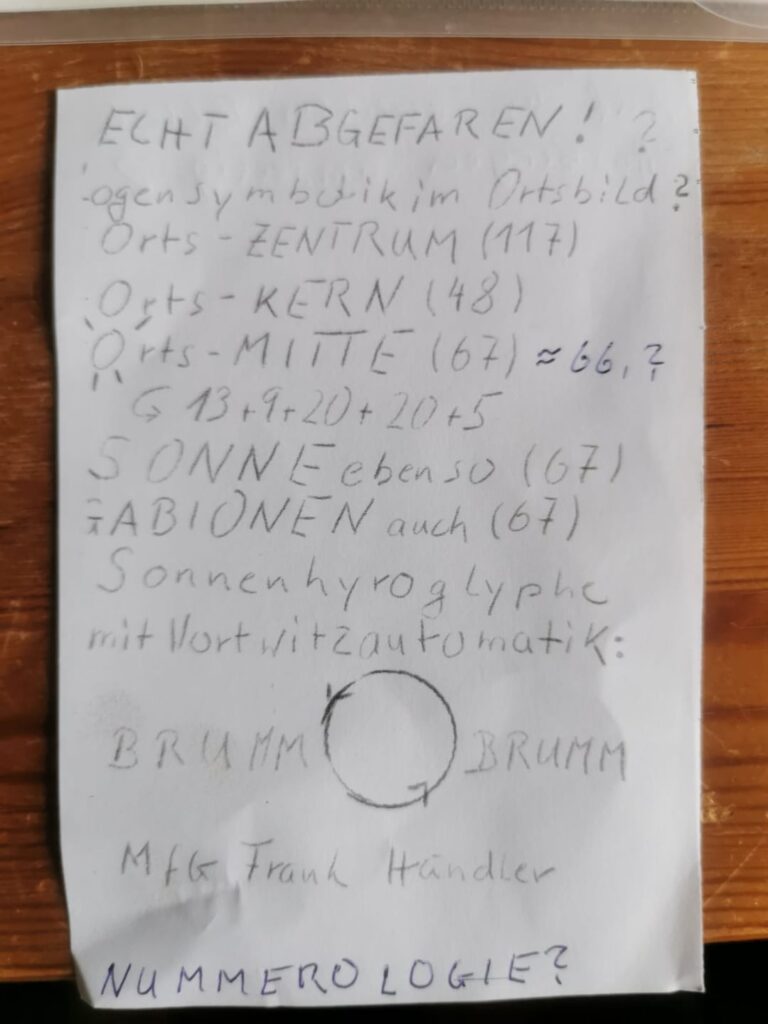 ECHT ABGEFAREN! ?
ogensymbolik im Ortsbild?
Orts-ZENTRUM (117)
Orts-KERN (48)
Orts-MITTE (67) ≈ 66,?
↳ 13+9+20+20+5
SONNE ebenso (67)
FABIONEN auch (67)
Sonnenhyroglyphe
mit Wortwitzautomatik:
BRUMM BRUMM
MfG Frank Händler
NUMMEROLOGIE?